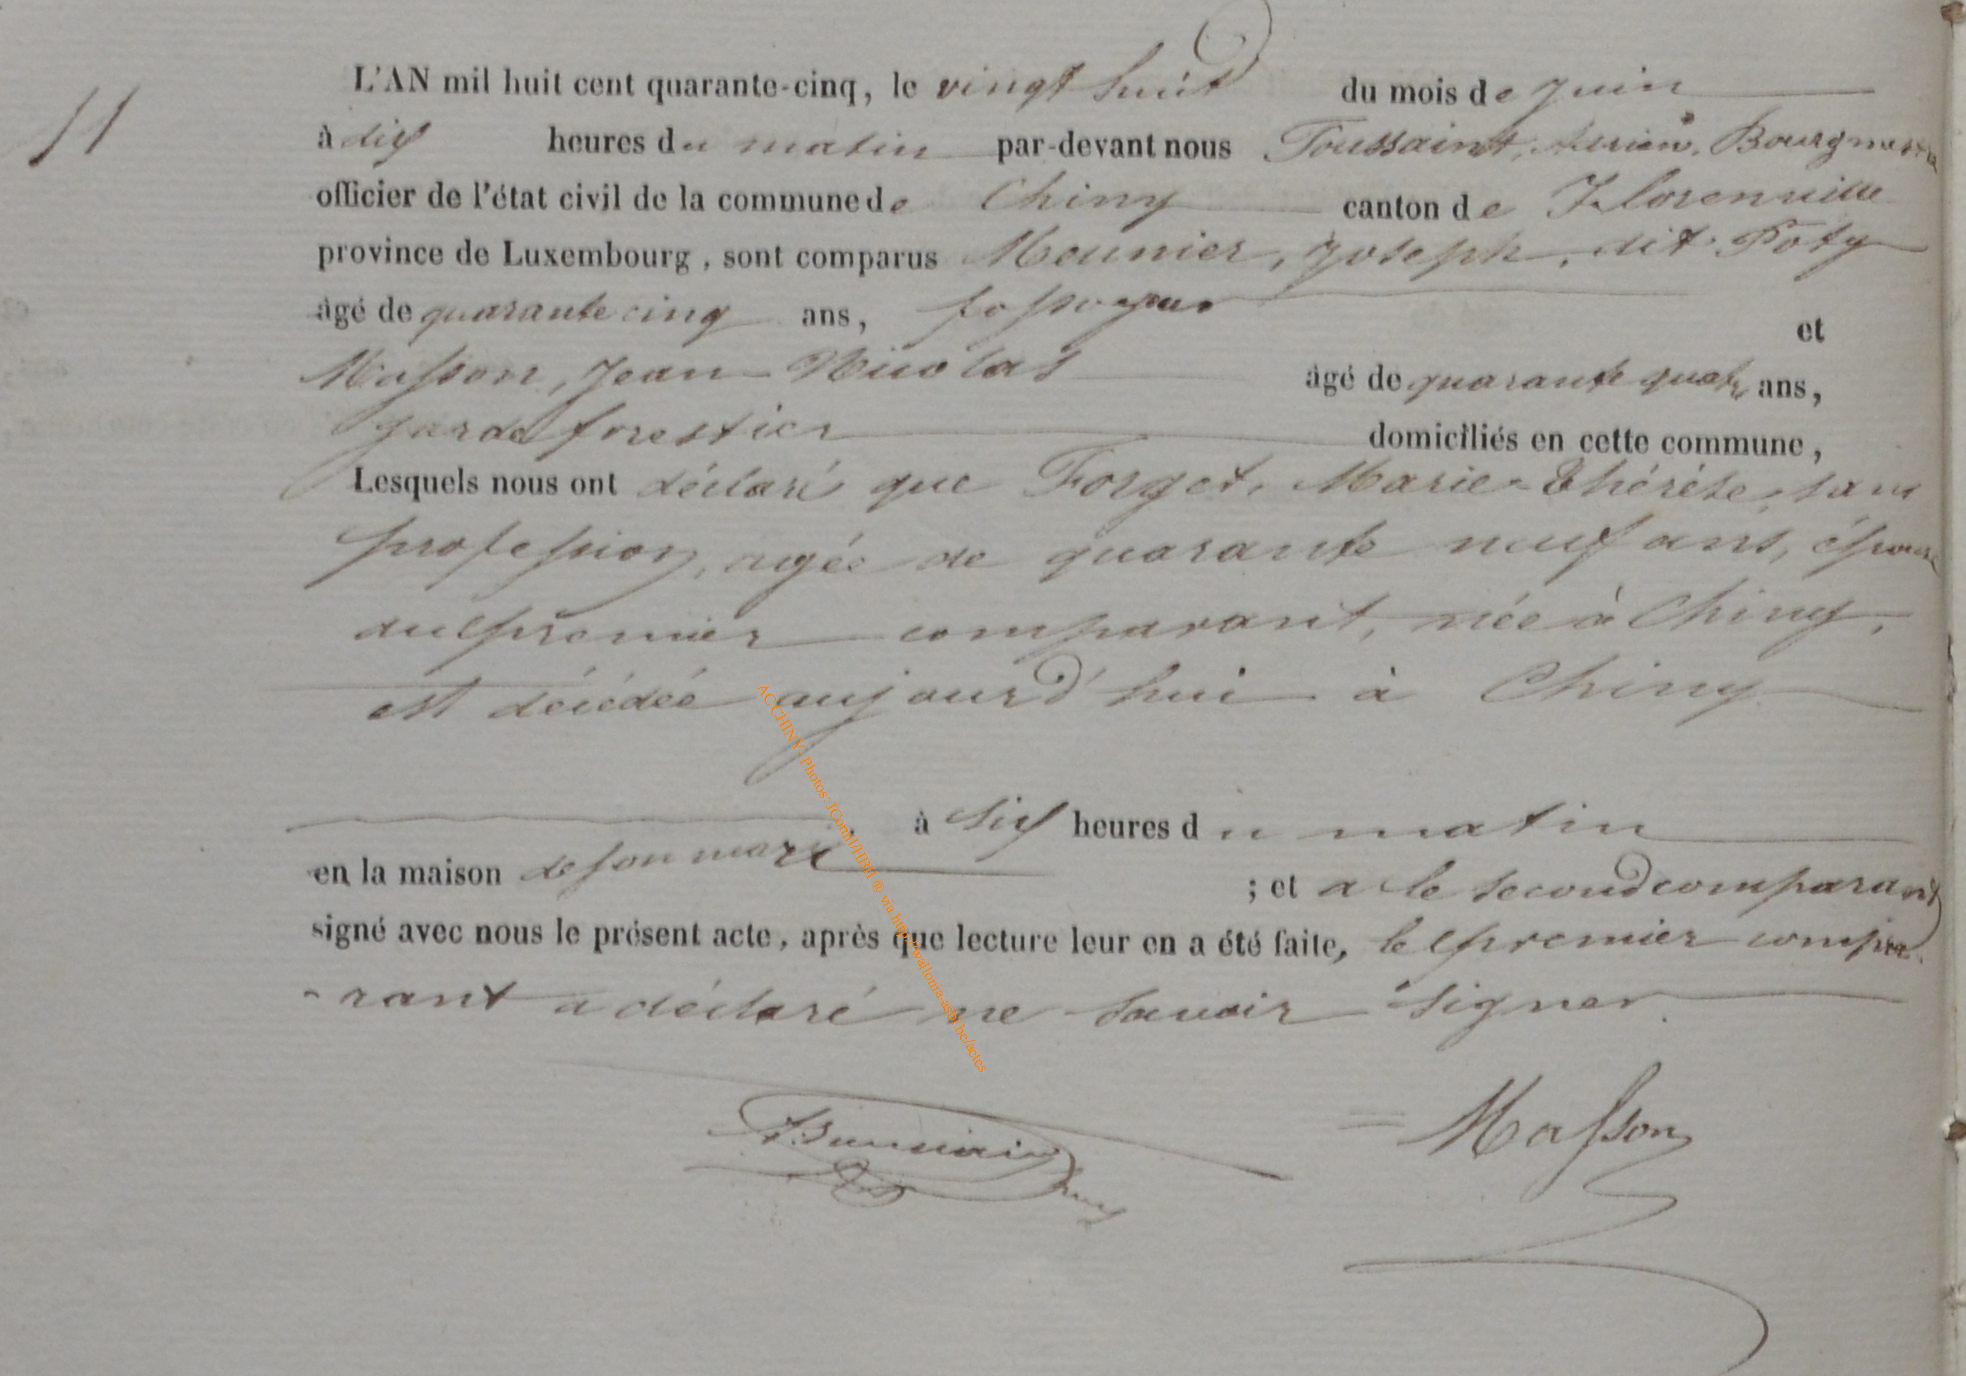 11
L'AN mil huit cent quarante-cinq, le vingt huit du mois de juin
à dix heures du matin par-devant nous Toussaint, Bourgmestre
officier de l'état civil de la commune de Chiny canton de Florenville
province de Luxembourg, sont comparus Meunier, Joseph, dit Poty
âgé de quarante cinq ans, fossoyeur et
Masson, Jean Nicolas âgé de quarante quatre ans,
garde forestier domiciliés en cette commune,
Lesquels nous ont déclaré que Forget, Marie-Thérése, sans
profession, agée de quarante neuf ans, épouse
du premier comparant, née à Chiny,
est décédée aujourd'hui à Chiny
à six heures du matin
en la maison de son mari ; et a le second comparant
signé avec nous le présent acte, après que lecture leur en a été faite, le premier compa-
-rant a déclaré ne savoir signer.
Masson
ACCHINY - Photos